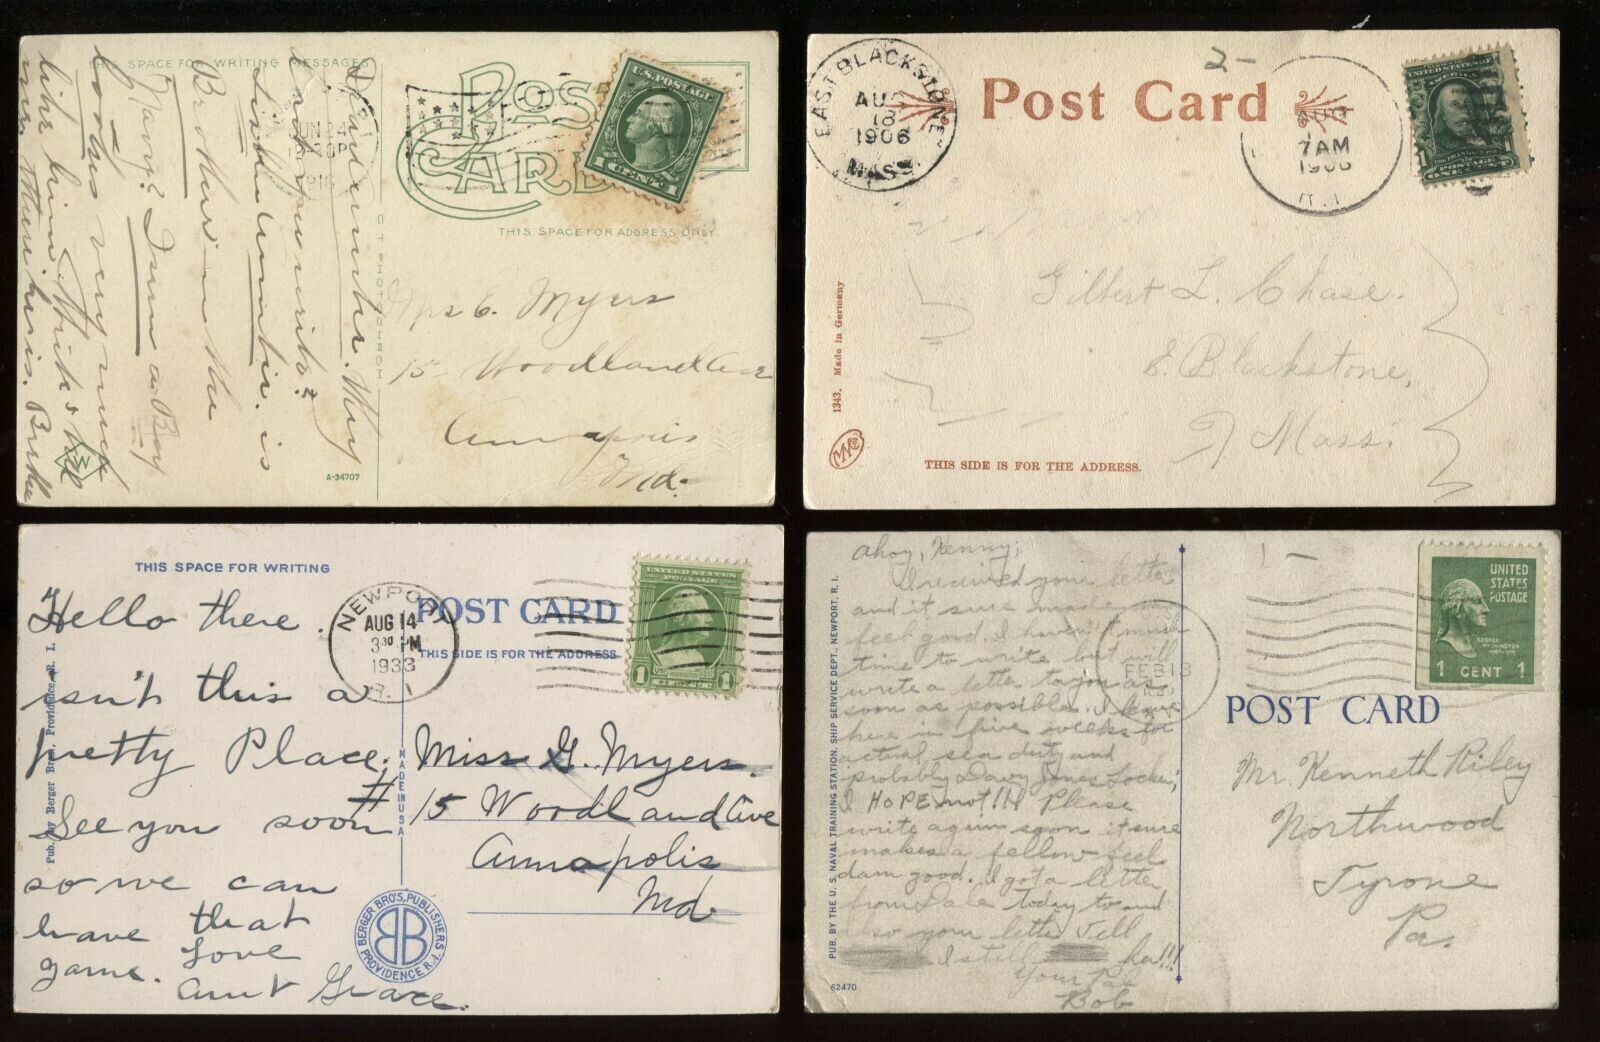 THIS SPACE FOR WRITING MESSAGES
POST
CARD
U.S. POSTAGE
1 CENT 1
JUN 24
1916
THIS SPACE FOR ADDRESS ONLY
C T PHOTOCHROM
A-34707
Why
don't you write?
is
Brother in the
Navy? I saw a Boy
looks very much
like him. Think I will
Mrs C. Myers
15 Woodland Ave
Annapolis
Md.
EAST BLACKSTONE
AUG
13
1906
MASS.
Post Card
2-
AUG
7AM
1906
R.I.
UNITED STATES OF AMERICA
POSTAGE
ONE CENT
1343. Made in Germany
Gilbert L. Chase.
E. Blackstone,
Mass.
THIS SIDE IS FOR THE ADDRESS.
THIS SPACE FOR WRITING
Hello there.
isn't this a
pretty Place.
See you soon
so we can
have that
game. Love
Aunt Grace.
Pub. by Berger Bros. Providence, R. I.
MADE IN U S A
BERGER BRO'S, PUBLISHERS
BB
PROVIDENCE R.I.
NEWPORT
AUG 14
3 30 PM
1933
R. I.
POST CARD
THIS SIDE IS FOR THE ADDRESS
UNITED STATES
POSTAGE
1 CENT 1
Miss G. Myers.
# 15 Woodland Ave
Annapolis
Md.
Ahoy, Kenny;
I received your letter
and it sure made me
feel good. I haven't much
time to write but will
write a letter to you as
soon as possible. I leave
here in five weeks for
actual sea duty and
probably Davy Jones Locker;
I HOPE not!!! Please
write again soon it sure
makes a fellow feel
dam good. I got a letter
from Dale today to and
also your letter. Tell
I still her!!!
Your Pal
Bob
PUB. BY THE U. S. NAVAL TRAINING STATION, SHIP SERVICE DEPT., NEWPORT, R. I.
62470
1 -
FEB 13
UNITED
STATES
POSTAGE
GEORGE
WASHINGTON
1789-1797
1 CENT 1
POST CARD
Mr. Kenneth Riley
Northwood
Tyrone
Pa.